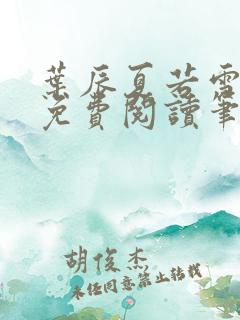 葉辰夏若雪
免費閱讀筆
胡俊杰
未经同意禁止转载